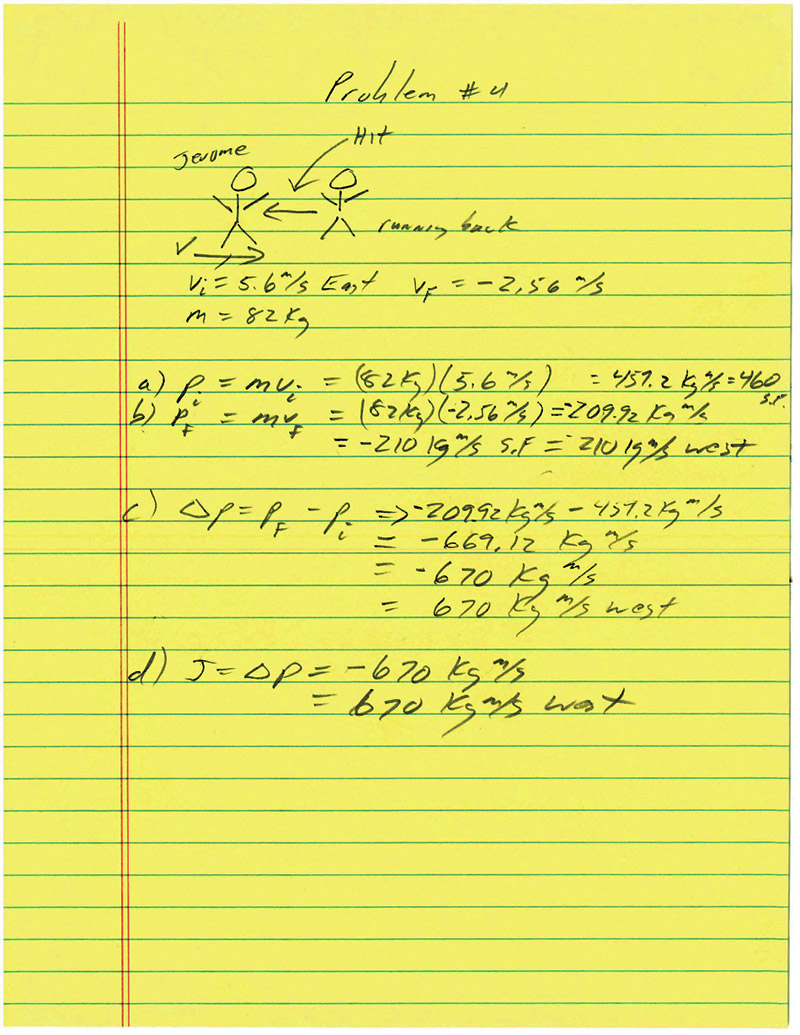 Problem #4
Hit
Jerome
running back
V
Vi = 5.6 m/s East VF = -2.56 m/s
m = 82 Kg
a) Pi = mvi = (82 Kg)(5.6 m/s) = 459.2 Kg m/s = 460 S.F.
b) PF = mvF = (82 Kg)(-2.56 m/s) = -209.92 Kg m/s
= -210 Kg m/s S.F = 210 Kg m/s west
c) Δp = PF - Pi => -209.92 Kg m/s - 459.2 Kg m/s
= -669.12 Kg m/s
= -670 Kg m/s
= 670 Kg m/s west
d) J = Δp = -670 Kg m/s
= 670 Kg m/s west